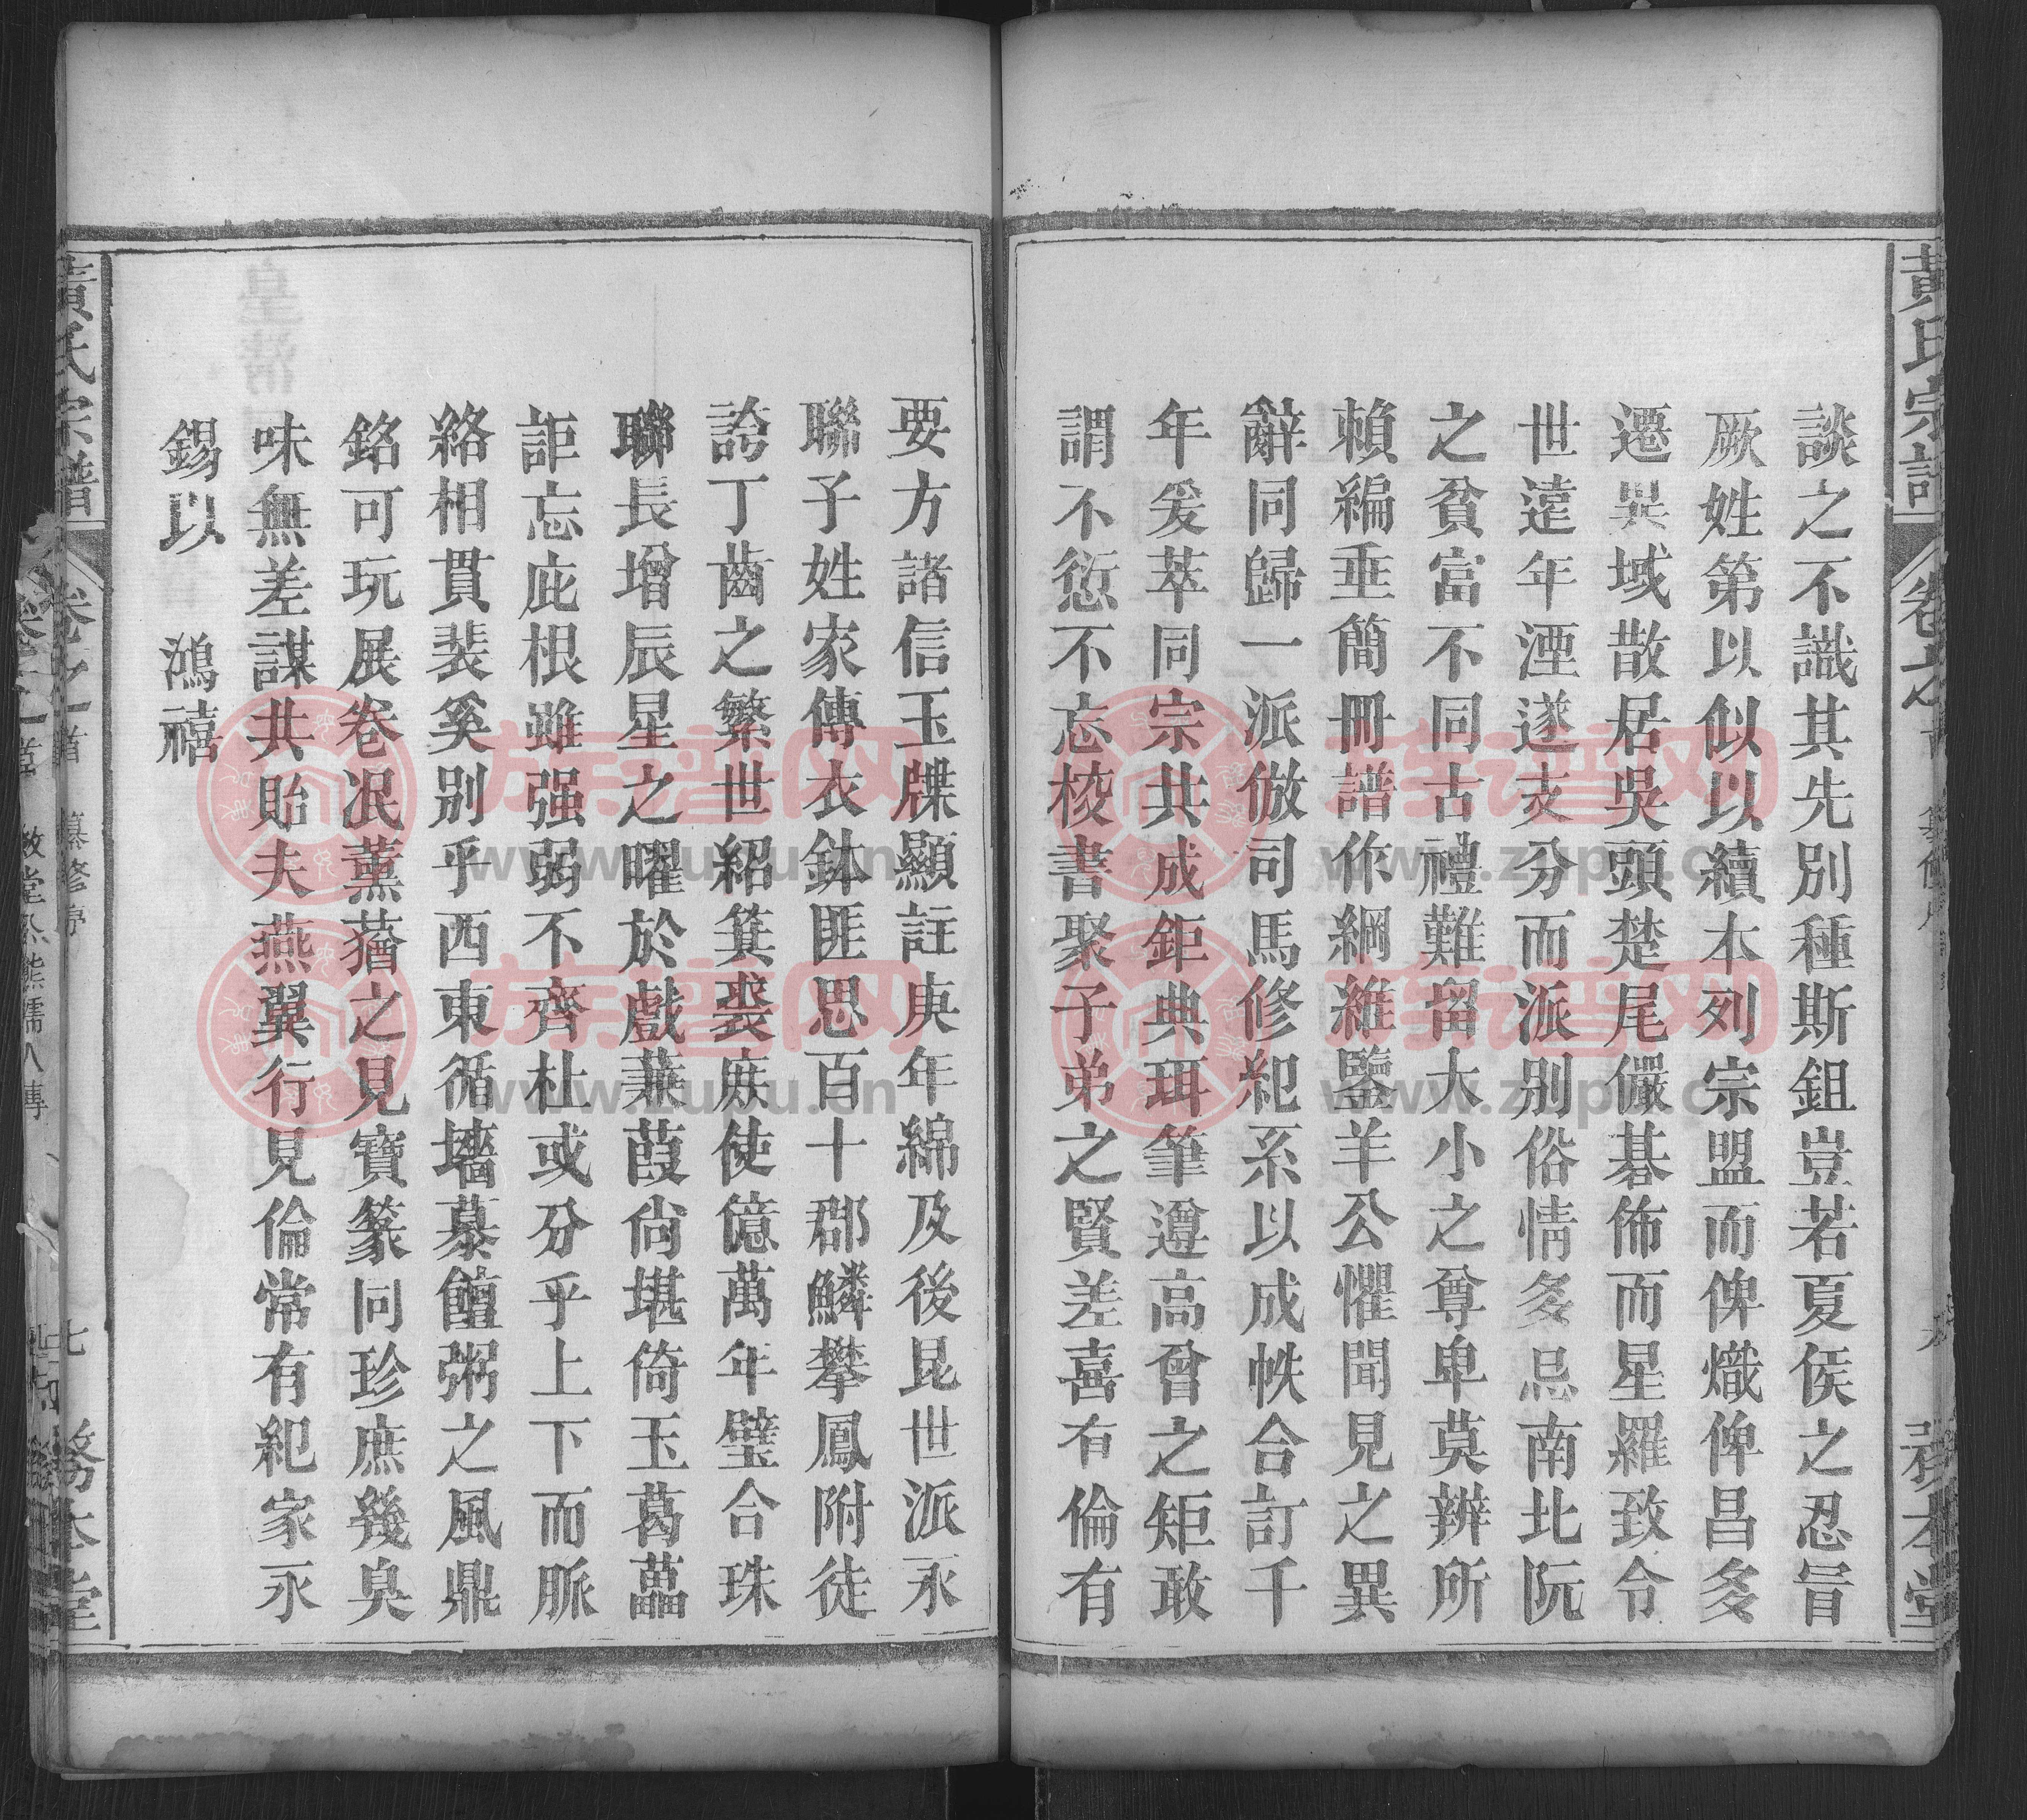 黃氏宗譜
談之不識其先別種斯鉏豈若夏侯之忍冒
厥姓第以似以續本列宗盟而俾熾俾昌多
遷異域散居吳頭楚尾儼碁佈而星羅致令
世遠年湮遂支分而派別俗情多忌南北阮
之貧富不同古禮難留大小之尊卑莫辨所
賴編垂簡冊譜作綱維鑒羊公懼聞見之異
辭同歸一派倣司馬修紀系以成帙合訂千
年爰萃同宗共成鉅典珥筆遵高曾之矩敢
謂不愆不忘梭書聚子弟之賢差喜有倫有
要方諸信玉牒顯註庚年綿及後昆世派永
聯子姓家傳衣鉢匪思百十郡鱗攀鳳附徒
誇丁齒之繁世紹箕裘庶使億萬年璧合珠
聯長增辰星之曜於戲蒹葭尙堪倚玉葛藟
詎忘庇根雖强弱不齊杜或分乎上下而脈
絡相貫裴奚別乎西東循墻慕饘粥之風鼎
銘可玩展卷泯薰蕕之見寶篆同珍庶幾臭
味無差謀共貽夫燕翼行見倫常有紀家永
錫以　鴻禧
黃氏宗譜 卷之首 纂修序 七 務本堂
族譜网
www.zupu.cn